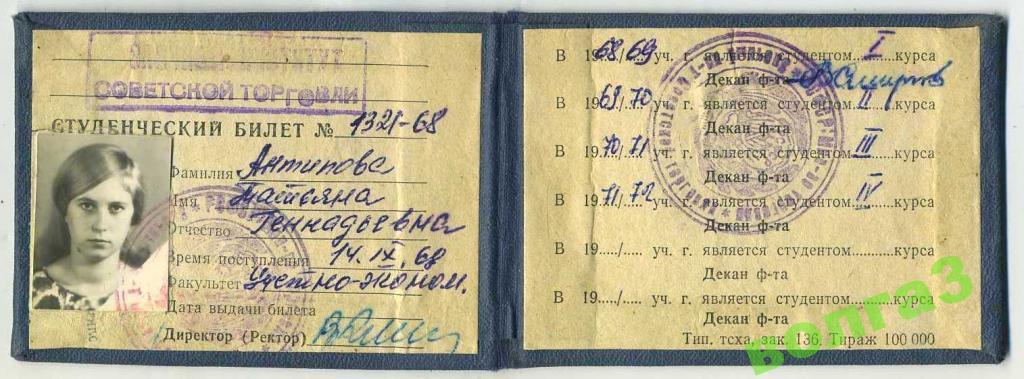 ИНСТИТУТ
СОВЕТСКОЙ ТОРГОВЛИ
СТУДЕНЧЕСКИЙ БИЛЕТ № 1321-68
Фамилия Антипова
Имя Татьяна
Отчество Геннадьевна
Время поступления 14.IX.68
Факультет Учетно-эконом.
Дата выдачи билета
Директор (Ректор)
В 1968/69 уч. г. является студентом I курса
Декан ф-та
В 1969/70 уч. г. является студентом II курса
Декан ф-та
В 1970/71 уч. г. является студентом III курса
Декан ф-та
В 1971/72 уч. г. является студентом IV курса
Декан ф-та
В 19...../..... уч. г. является студентом......курса
Декан ф-та
В 19...../..... уч. г. является студентом......курса
Декан ф-та
Тип. тсха, зак. 136. Тираж 100 000
волга3